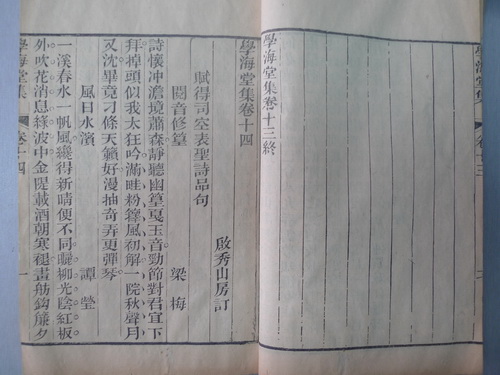 學海堂集 卷十三
學海堂集卷十三終
學海堂集卷十四
啟秀山房訂
賦得司空表聖詩品句
閱音修篁 梁梅
詩懷冲澹境蕭森靜聽幽篁戛玉音勁節對君宜下
拜掉頭似我太狂吟滿畦粉籜風初解一院秋聲月
又沈畢竟刁條天籟好漫抽奇弄更彈琴
風日水濱 譚瑩
一溪春水一帆風纔得新晴便不同曬柳光陰紅板
外吹花消息綠波中金隄載酒朝寒褪畫舫鈎簾夕
學海堂集 卷十四 一